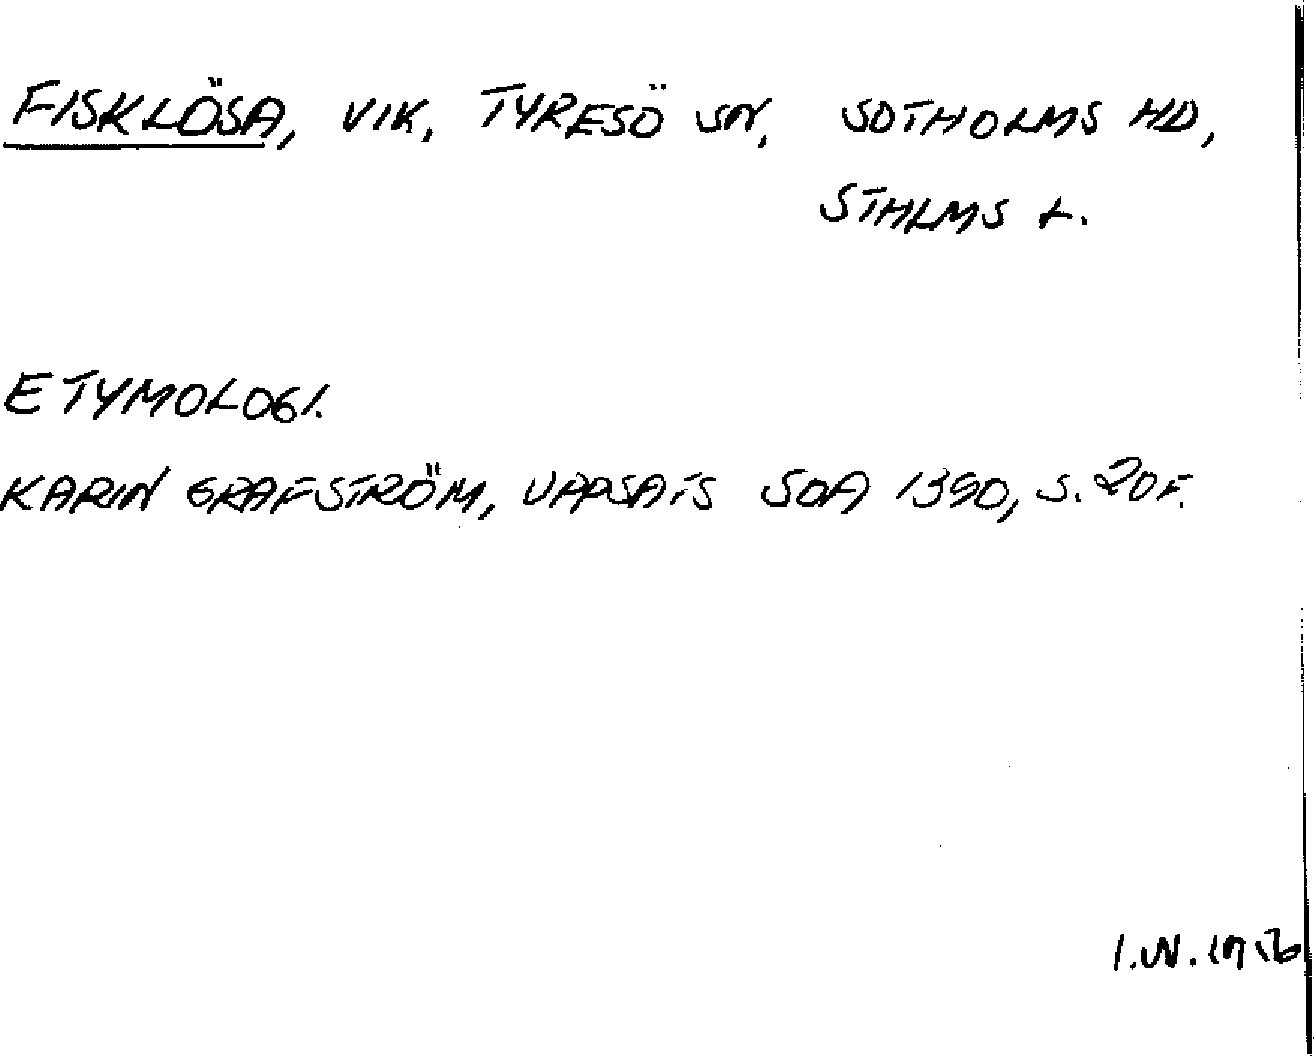 FISKLÖSA, VIK, TYRESÖ SN, SOTHOLMS HD,
STHLMS L.
ETYMOLOGI.
KARIN GRAFSTRÖM, UPPSATS SOA 1390, S. 20 F.
I.W.